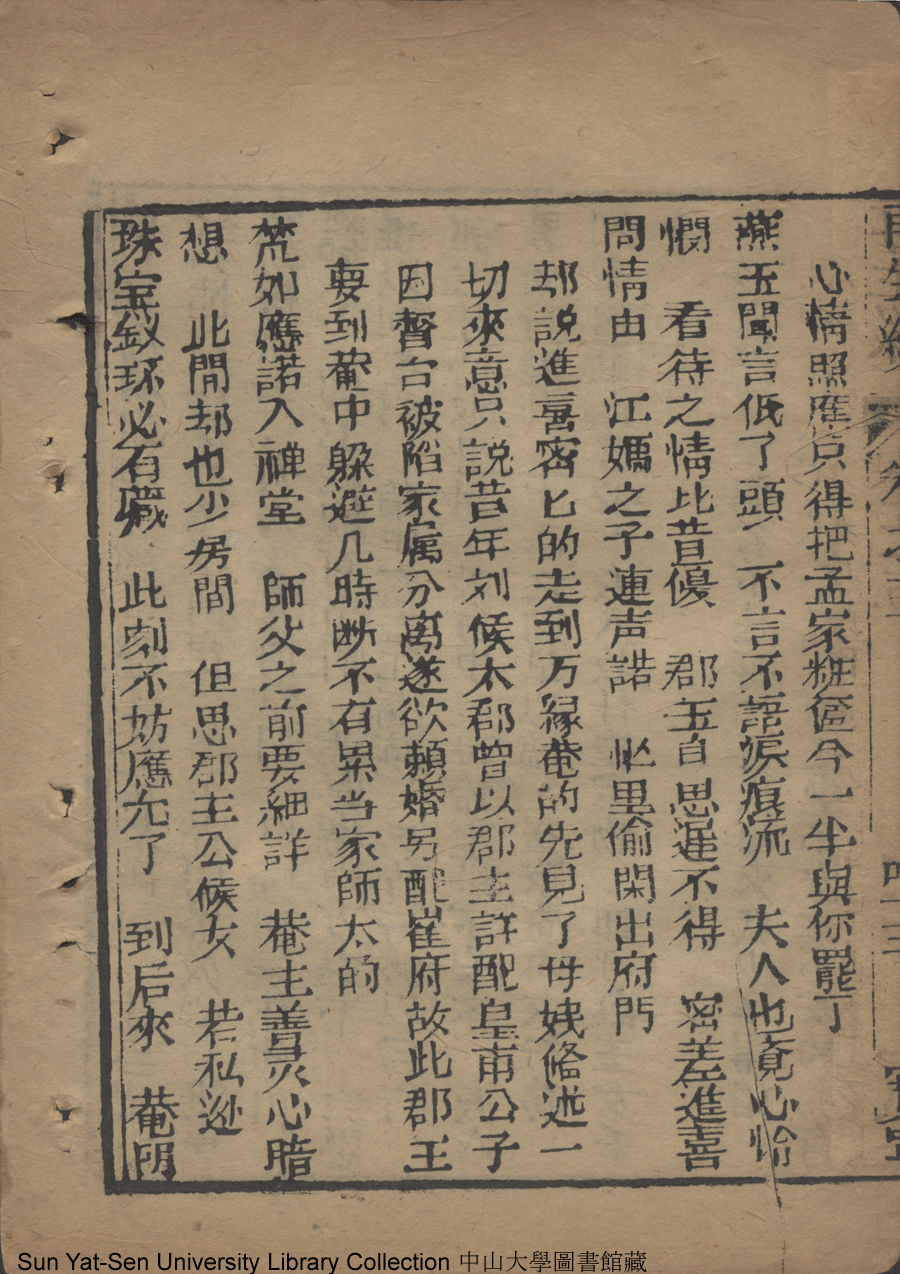 心情照應只得把孟家粧奩今一半與你罷了
燕玉聞言低了頭 不言不語淚痕流 夫人也竟心怜
憫 看待之情比昔優 郡主自思遲不得 密差進喜
問情由 江媽之子連声諾 忙里偷閑出府門
却說進喜密匕的走到万緣菴的先見了母姨俻述一
切來意只說昔年刘候木郡曾以郡主許配皇甫公子
因督台被陷家属分离遂欲賴婚另配崔府故此郡王
要到菴中躲避几時断不有累当家師太的
梵如應諾入禅堂 師父之前要細詳 菴主善灵心暗
想 此間却也少房間 但思郡主公候女 若私逊
珠宝釵环必有藏 此刻不妨應允了 到后來 菴門
Sun Yat-Sen University Library Collection 中山大學圖書館藏